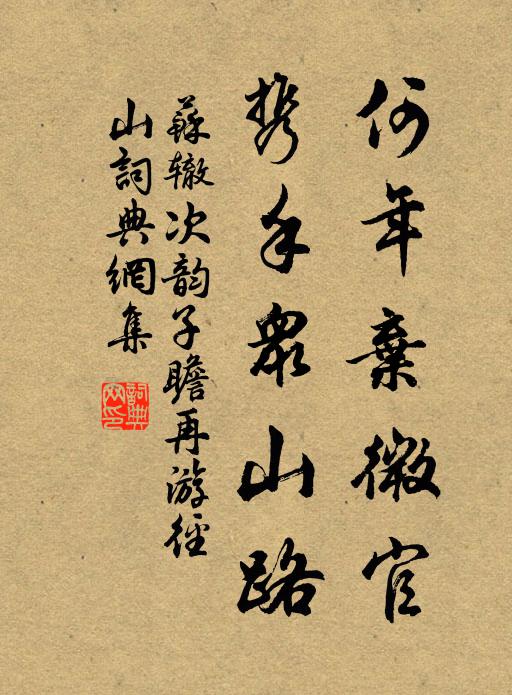 何年棄微官
携手眾山路
蘇辙次韵子瞻再游徑
山詞典網集
詞典網印